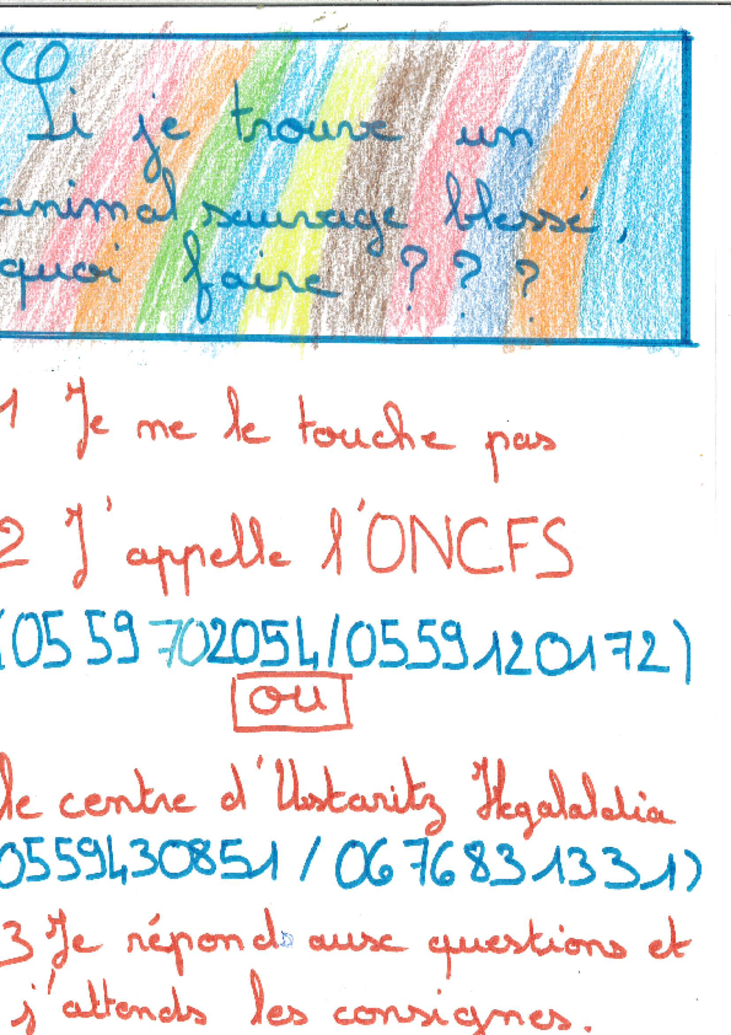 Si je trouve un
animal sauvage blessé,
quoi faire ???
1 Je ne le touche pas
2 J'appelle l'ONCFS
(0559702054/0559120172)
ou
le centre d'Ustaritz Hegalaldia
0559430851 / 0676831331)
3 Je réponds aux questions et
j'attends les consignes.